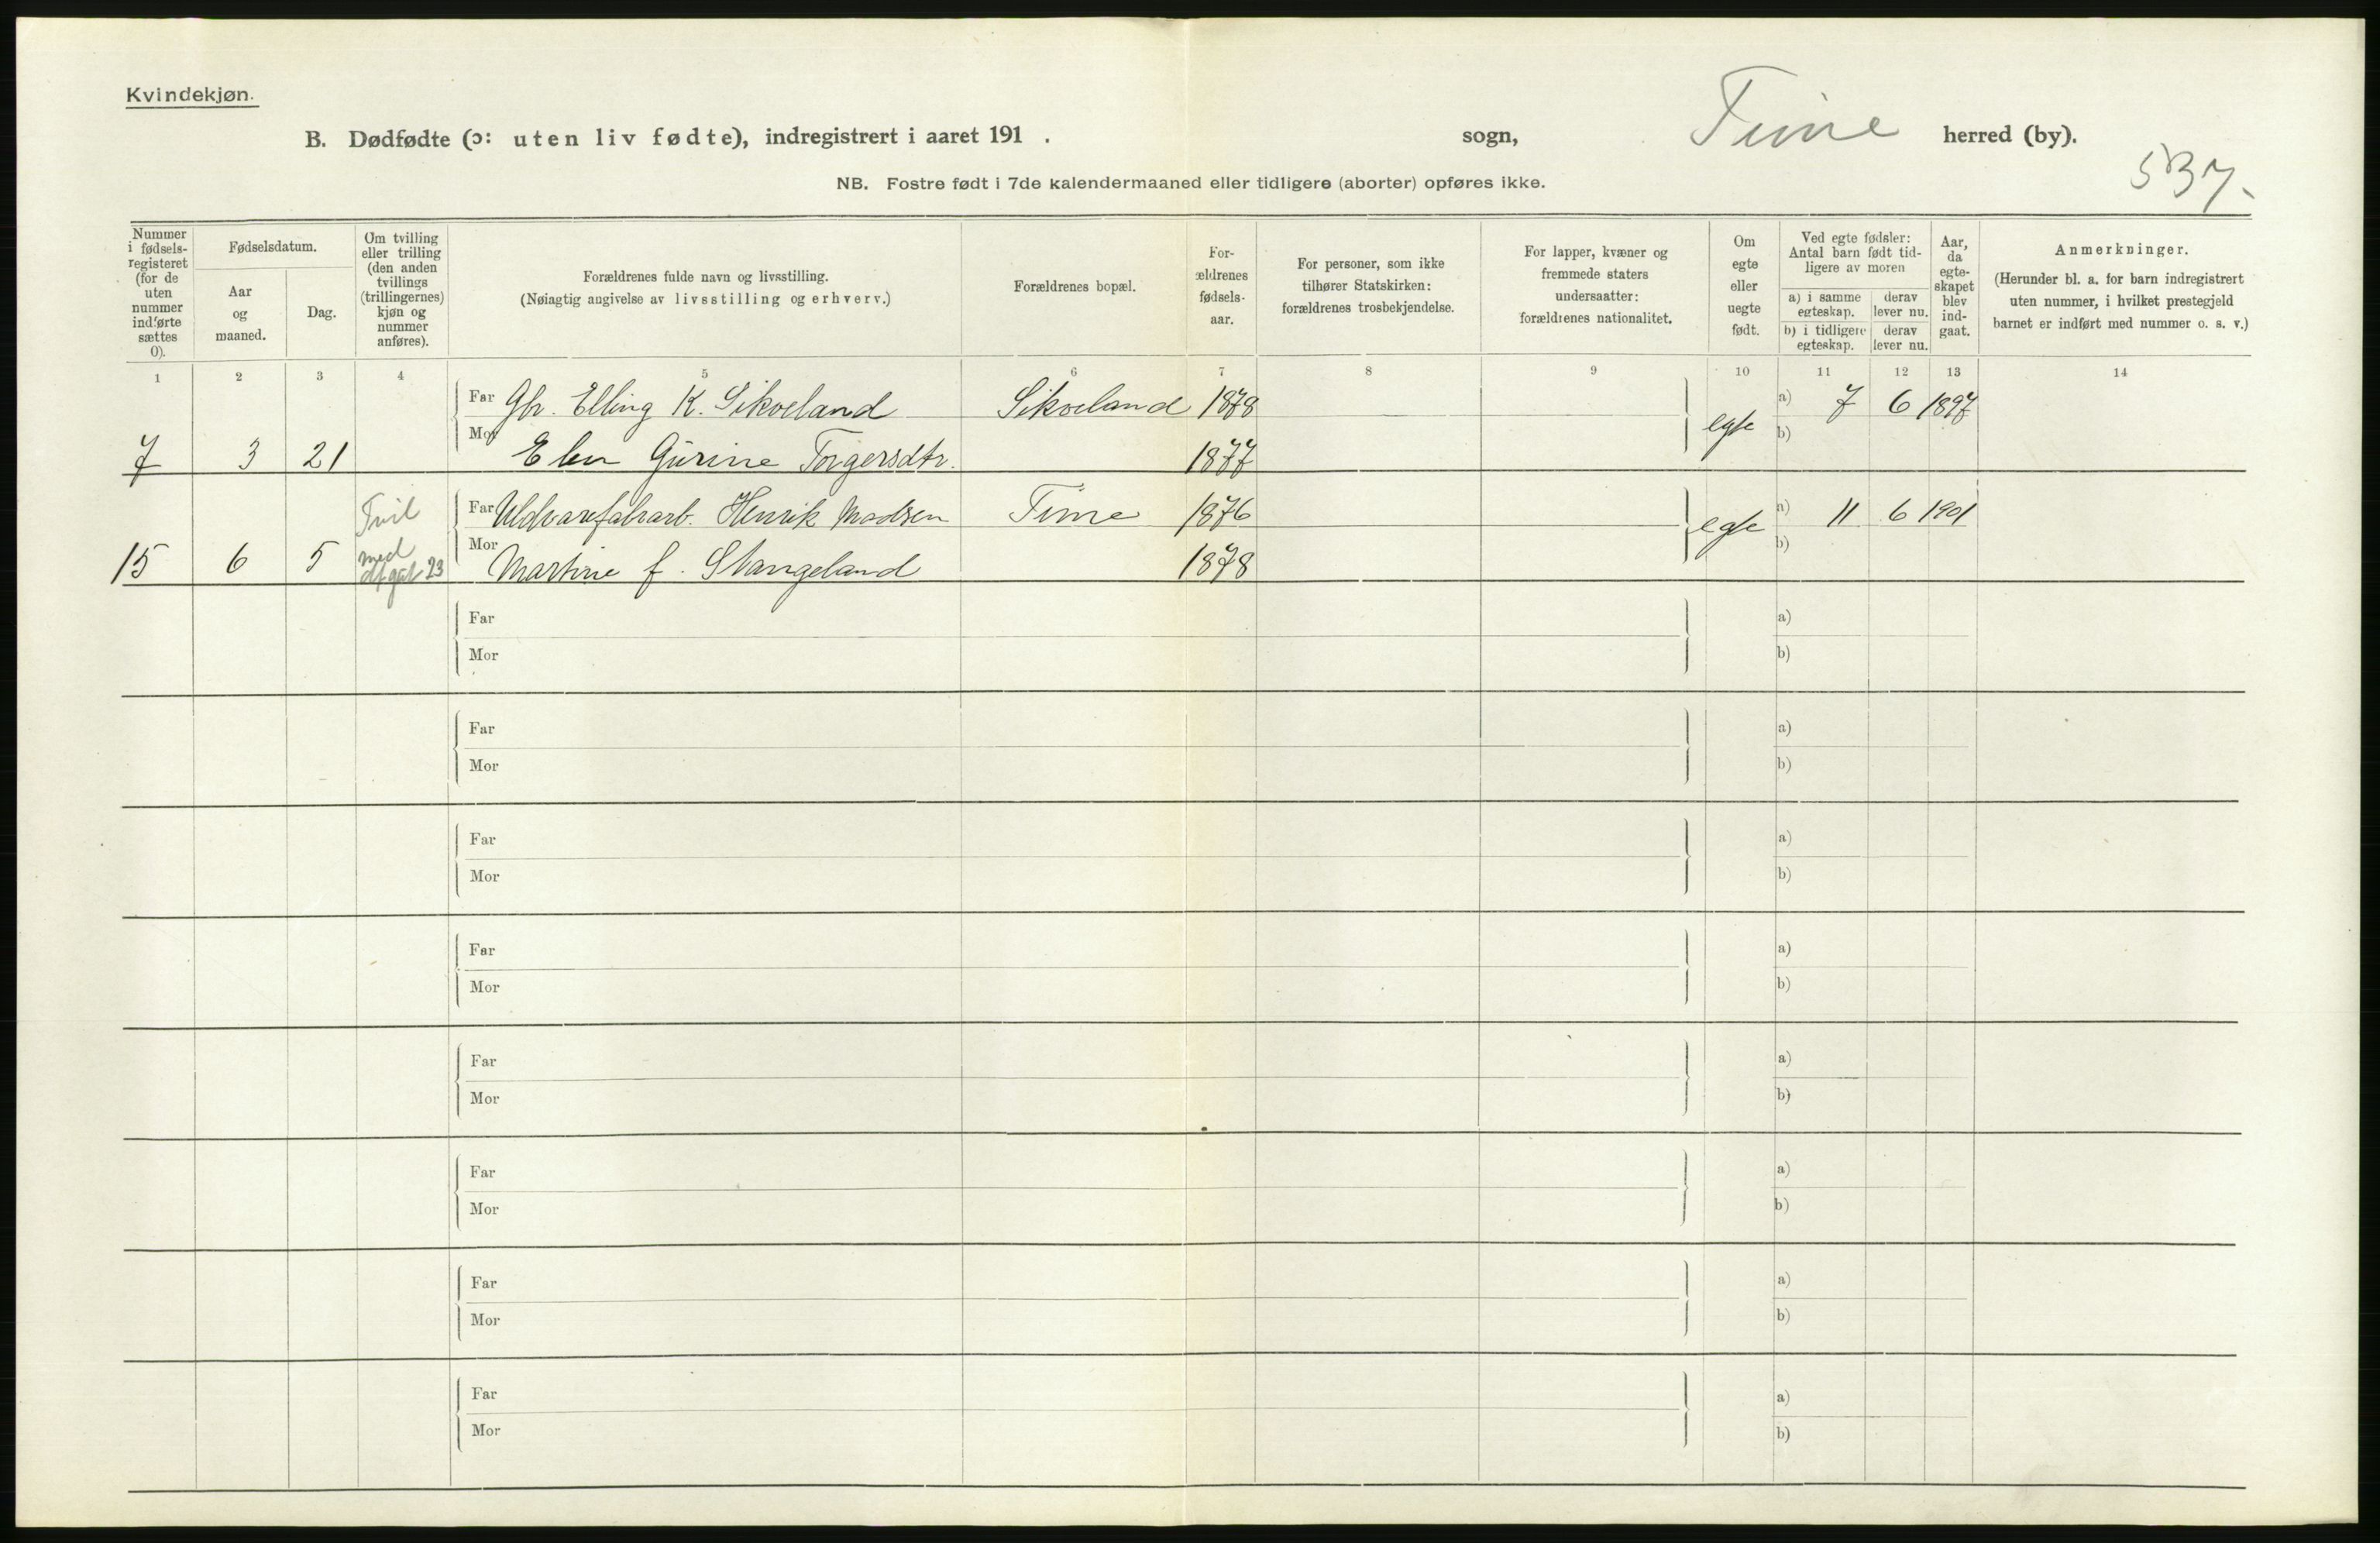 Kvindekjøn.
B. Dødfødte (ɔ: uten liv fødte), indregistrert i aaret 191 . sogn, Time herred (by).
537.
NB. Fostre født i 7de kalendermaaned eller tidligere (aborter) opføres ikke.
Nummer i fødsels-registeret (for de uten nummer indførte sættes 0).
Fødselsdatum.
Aar og maaned.
Dag.
Om tvilling eller trilling (den anden tvillings (trillingernes) kjøn og nummer anføres).
Forældrenes fulde navn og livsstilling.
(Nøiagtig angivelse av livsstilling og erhverv.)
Forældrenes bopæl.
For-ældrenes fødsels-aar.
For personer, som ikke tilhører Statskirken: forældrenes trosbekjendelse.
For lapper, kvæner og fremmede staters undersaatter: forældrenes nationalitet.
Om egte eller uegte født.
Ved egte fødsler: Antal barn født tid-ligere av moren
a) i samme egteskap. derav lever nu.
b) i tidligere egteskap. derav lever nu.
Aar, da egte-skapet blev ind-gaat.
Anmerkninger.
(Herunder bl. a. for barn indregistrert uten nummer, i hvilket prestegjeld barnet er indført med nummer o. s. v.)
1 2 3 4 5 6 7 8 9 10 11 12 13 14
Far Gbr. Elling K. Sikveland Sikveland 1878 egte a) 7 6 1897
7 3 21 Mor Elen Gurine Torgersdtr. 1877 b)
Tvil Far Uldvarefabrarb. Henrik Madsen Time 1876 egte a) 11 6 1901
15 6 5 med 23 Mor Martine f. Stangeland 1878 b)
Far a)
Mor b)
Far a)
Mor b)
Far a)
Mor b)
Far a)
Mor b)
Far a)
Mor b)
Far a)
Mor b)
Far a)
Mor b)
Far a)
Mor b)